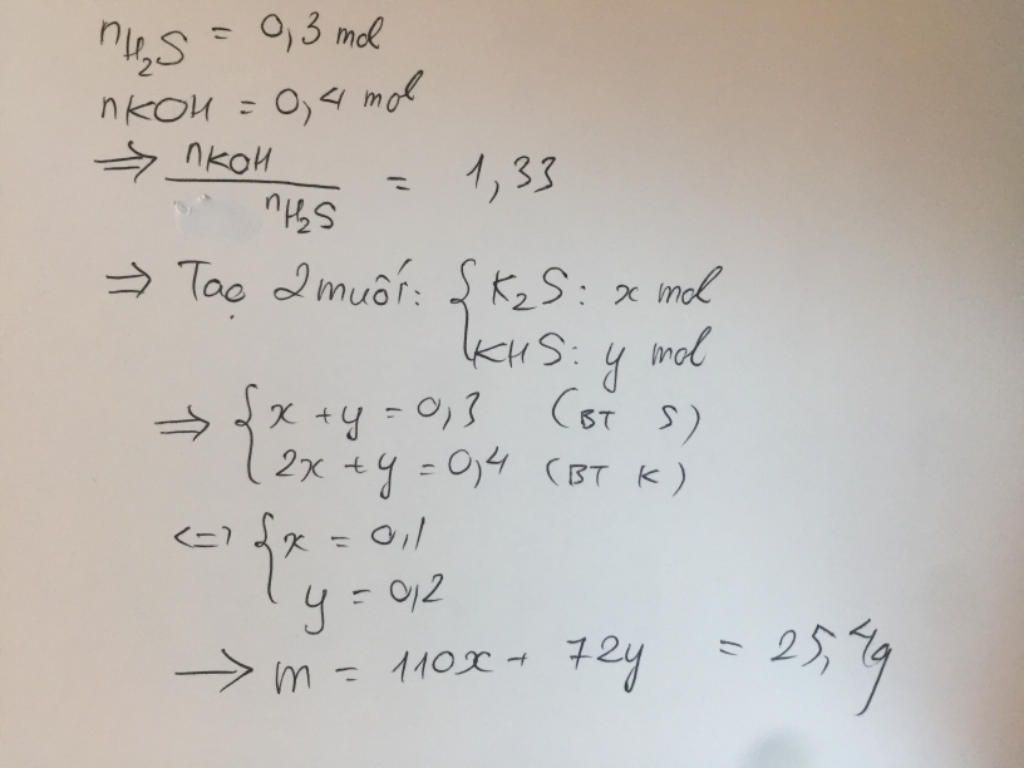 nH₂S = 0,3 mol
nKOH = 0,4 mol
⇒ nKOH / nH₂S = 1,33
⇒ Tạo 2 muối: { K₂S: x mol
KHS: y mol
⇒ { x + y = 0,3 (BT S)
2x + y = 0,4 (BT K)
<=> { x = 0,1
y = 0,2
→ m = 110x + 72y = 25,4g